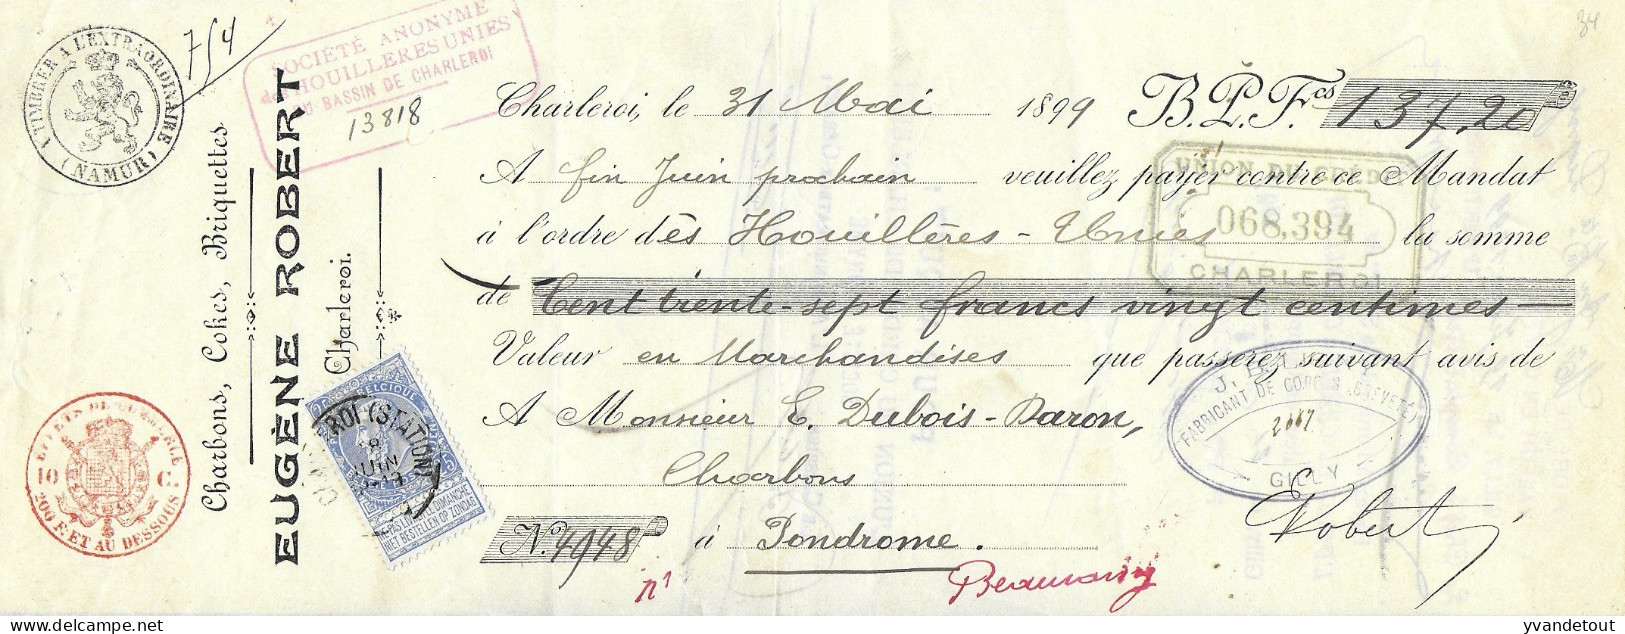 A TIMBRER A L'EXTRAORDINAIRE
(NAMUR)
7/4
34
SOCIÉTÉ ANONYME
des HOUILLÈRES UNIES
DU BASSIN DE CHARLEROI
13818
Charbons, Cokes, Briquettes
EUGÈNE ROBERT
Charleroi.
Charleroi, le 31 Mai 1899 B.P.F.cs 137,20
A fin Juin prochain veuillez payer contre ce Mandat
à l'ordre des Houillères-Unies la somme
de Cent trente-sept francs vingt centimes
Valeur en Marchandises que passerez suivant avis de
A Monsieur E. Dubois-Daron,
Charbons
No. 4948 à Pondrome.
n1
Beauraing
ERobert
UNION DU CRÉDIT
068,394
CHARLEROI
J.
FABRICANT DE
(BREVETÉ)
2667
GILLY
EFFETS DE COMMERCE
10 C.
200 F. ET AU DESSOUS
BELGIQUE
ROI (STATION)
8
JUIN
NE PAS LIVRER LE DIMANCHE
NIET BESTELLEN OP ZONDAG
delcampe.net
yvandetout